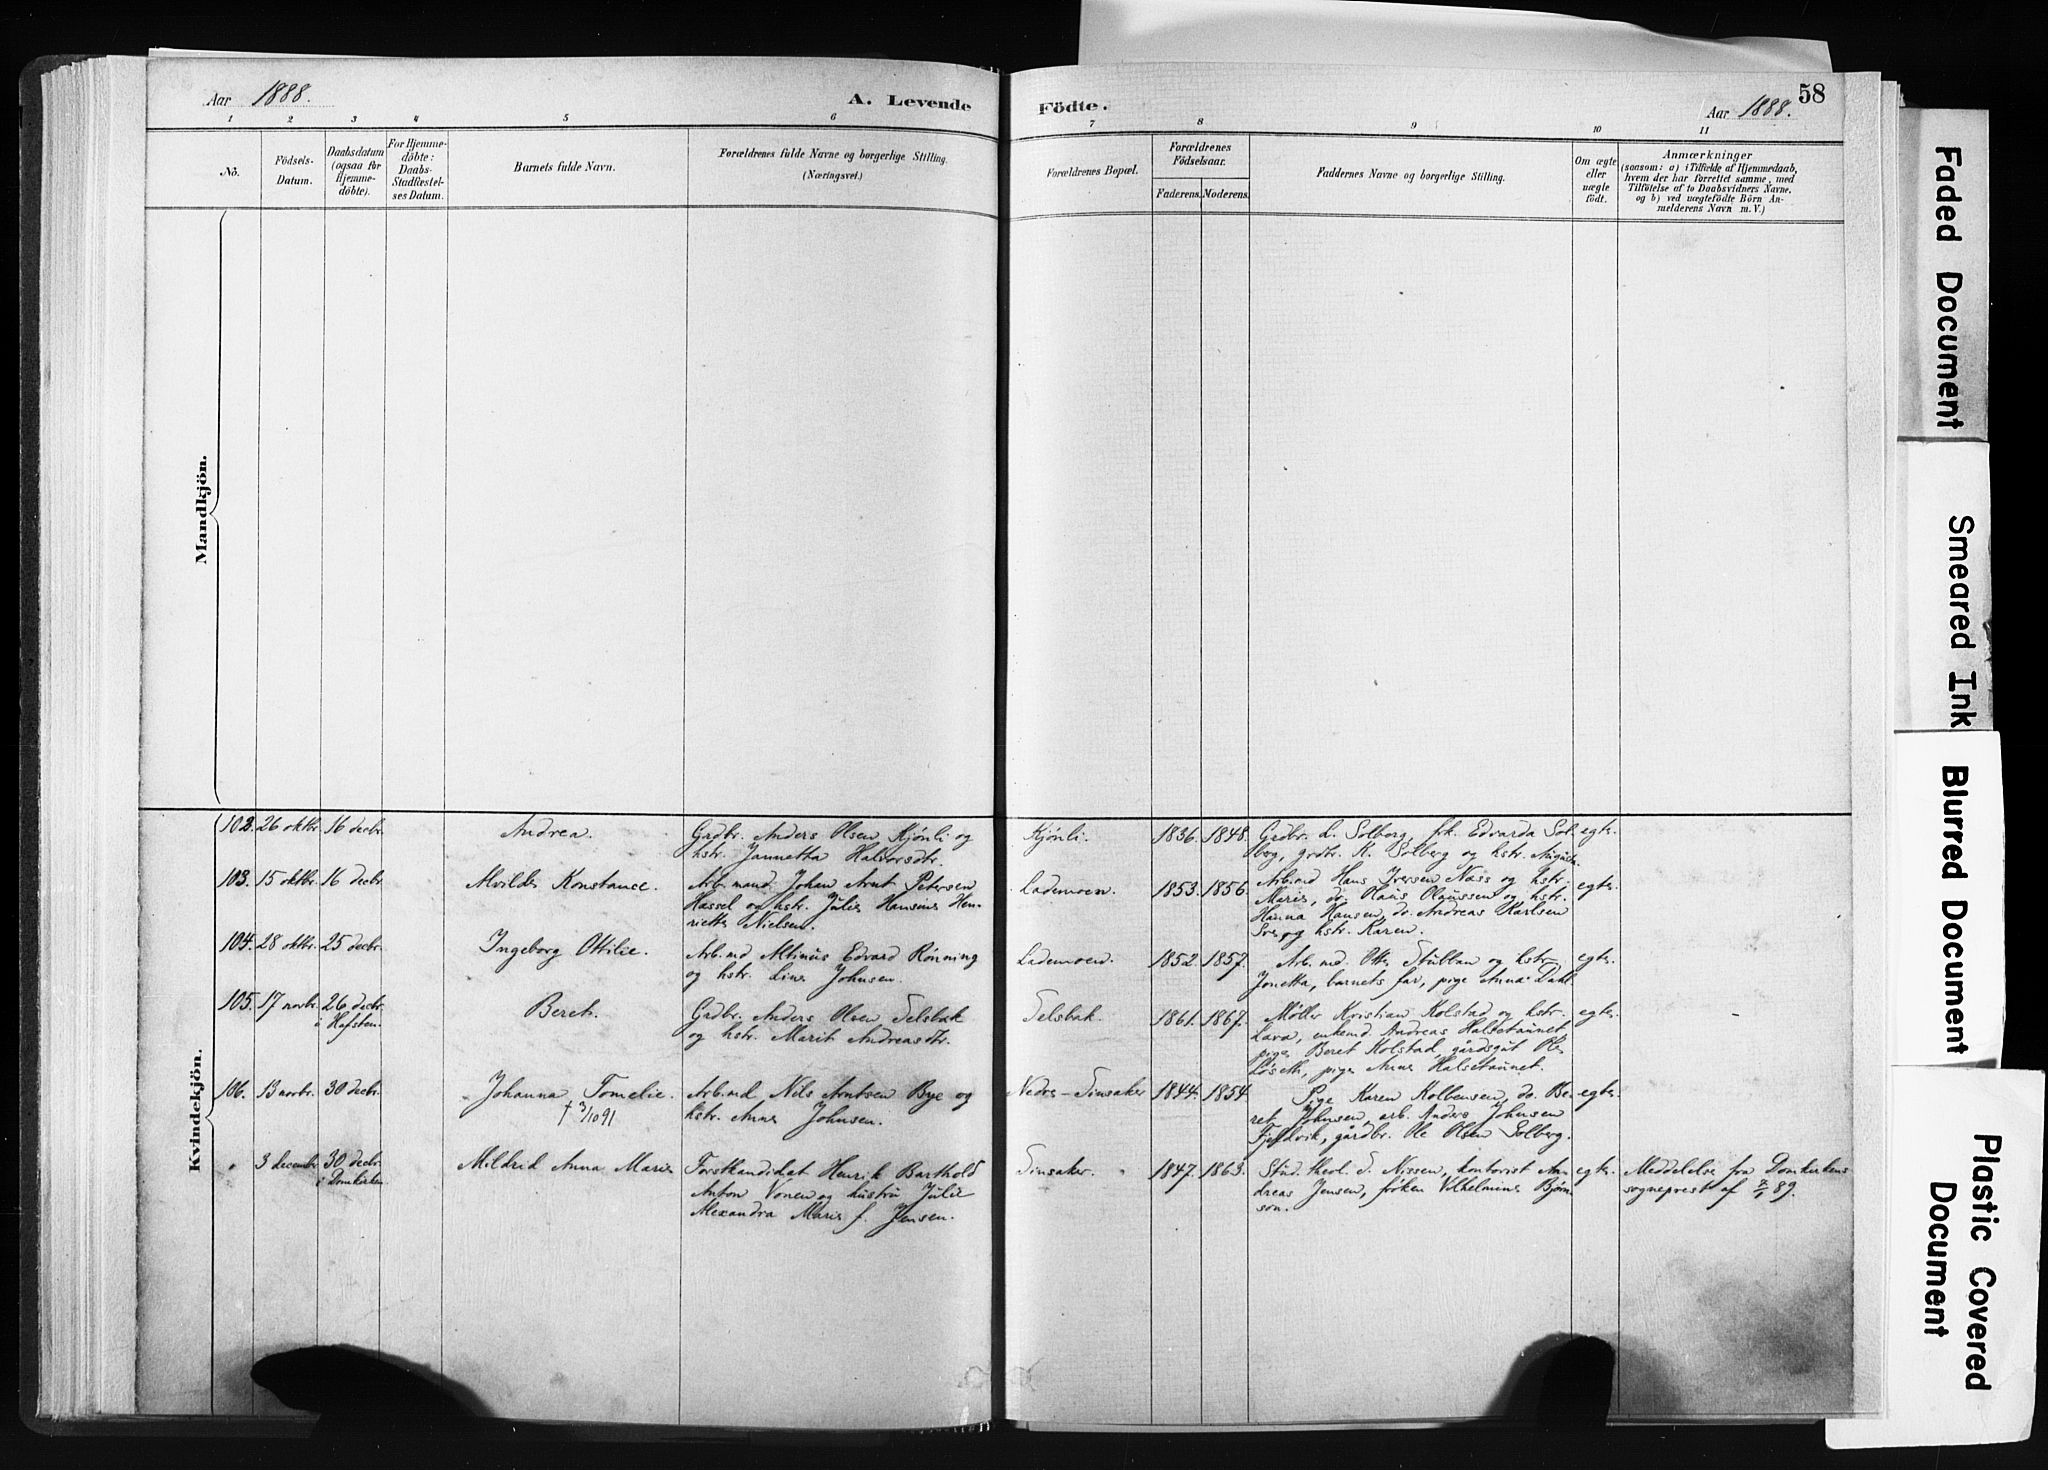 Aar 1888.
A. Levende Födte.
Aar 1888.
58
1 2 3 4 5 6 7 8 9 10 11
No.
Födsels-
Datum.
Daabsdatum
(ogsaa for
Hjemme-
döbte).
For Hjemme-
döbte:
Daabs-
Stadfæstel-
ses Datum.
Barnets fulde Navn.
Forældrenes fulde Navne og borgerlige Stilling.
(Næringsvei.)
Forældrenes Bopæl.
Forældrenes
Födselsaar.
Faderens. Moderens.
Faddernes Navne og borgerlige Stilling.
Om ægte
eller
uægte
födt.
Anmærkninger
(saasom: a) i Tilfælde af Hjemmedaab,
hvem der har forrettet samme, med
Tilföielse af to Daabsvidners Navne.
og b) ved uægtefödte Börn An-
melderens Navn m. V.)
Mandkjön.
Kvindekjön.
102. 26 oktbr. 16 decbr. Andrea.
Grdbr. Anders Olsen Kjönli og
hstr. Jannetta Halvorsdtr.
Kjönli. 1836. 1848.
Grdbr. L. Solberg, frk. Edvarda Sol-
berg, grdbr. K. Solberg og hstr.
egte.
103. 15 oktbr. 16 decbr Alvilde Konstance.
Arb.mand Johan Arnt Petersen
Hassel og hstr. Julie Hansine Hen-
riette Nielsen.
Lademoen. 1853. 1856.
Arb.md Hans Iversen Næss og hstr.
Marie, do. Olaus Olaussen og hstr.
Hanna Hansen, do. Andreas Karlsen
og hstr. Karen.
egte.
104. 28 oktbr. 25 decbr. Ingeborg Ottilie.
Arb.md Altinus Edvard Rönning
og hstr. Line Johnsen.
Lademoen. 1852. 1857.
Arb.md. Otto Stubban og hstr
Jonetta, barnets far, pige Anna Dahl.
egte.
105. 17 novbr. 26 decbr.
i Hafsten. Beret.
Grdbr. Anders Olsen Selsbak
og hstr. Marit Andreasdtr.
Selsbak. 1861. 1867.
Møller Kristian Kolstad og hstr.
Lava, enkemd. Andreas Halsetaunet,
pige Beret Kolstad, gårdsgut Ole
Løseth, pige Anne Halsetaunet.
egte.
106. 13 novbr. 30 decbr. Johanna Tomelie.
† 3/10 91
Arb.md Nils Arntsen Bye og
hstr. Anne Johnsen.
Nedre-Sinsaker 1844. 1854.
Pige Karen Kolbensen, do. Be-
ret Johnsen, arb. Anders Johnsen
Fjeldvik, gårdbr. Ole Olsen Solberg.
egte.
" 3 december 30 decbr
i Domkirken Mildrid Anna Marie
Forstkandidat Henrik Barthold
Anton Vonen og hustru Julie
Alexandra Marie f. Jensen.
Sinsaker. 1847. 1863.
Stud. theol. S. Nissen, kontorist An-
dreas Jensen, frøken Vilhelmine Bjørn-
son.
egte.
Meddelelse fra Domkirkens
sogneprest af 7/1 89.
Faded Document
Smeared Ink
Blurred Document
Plastic Covered
Document